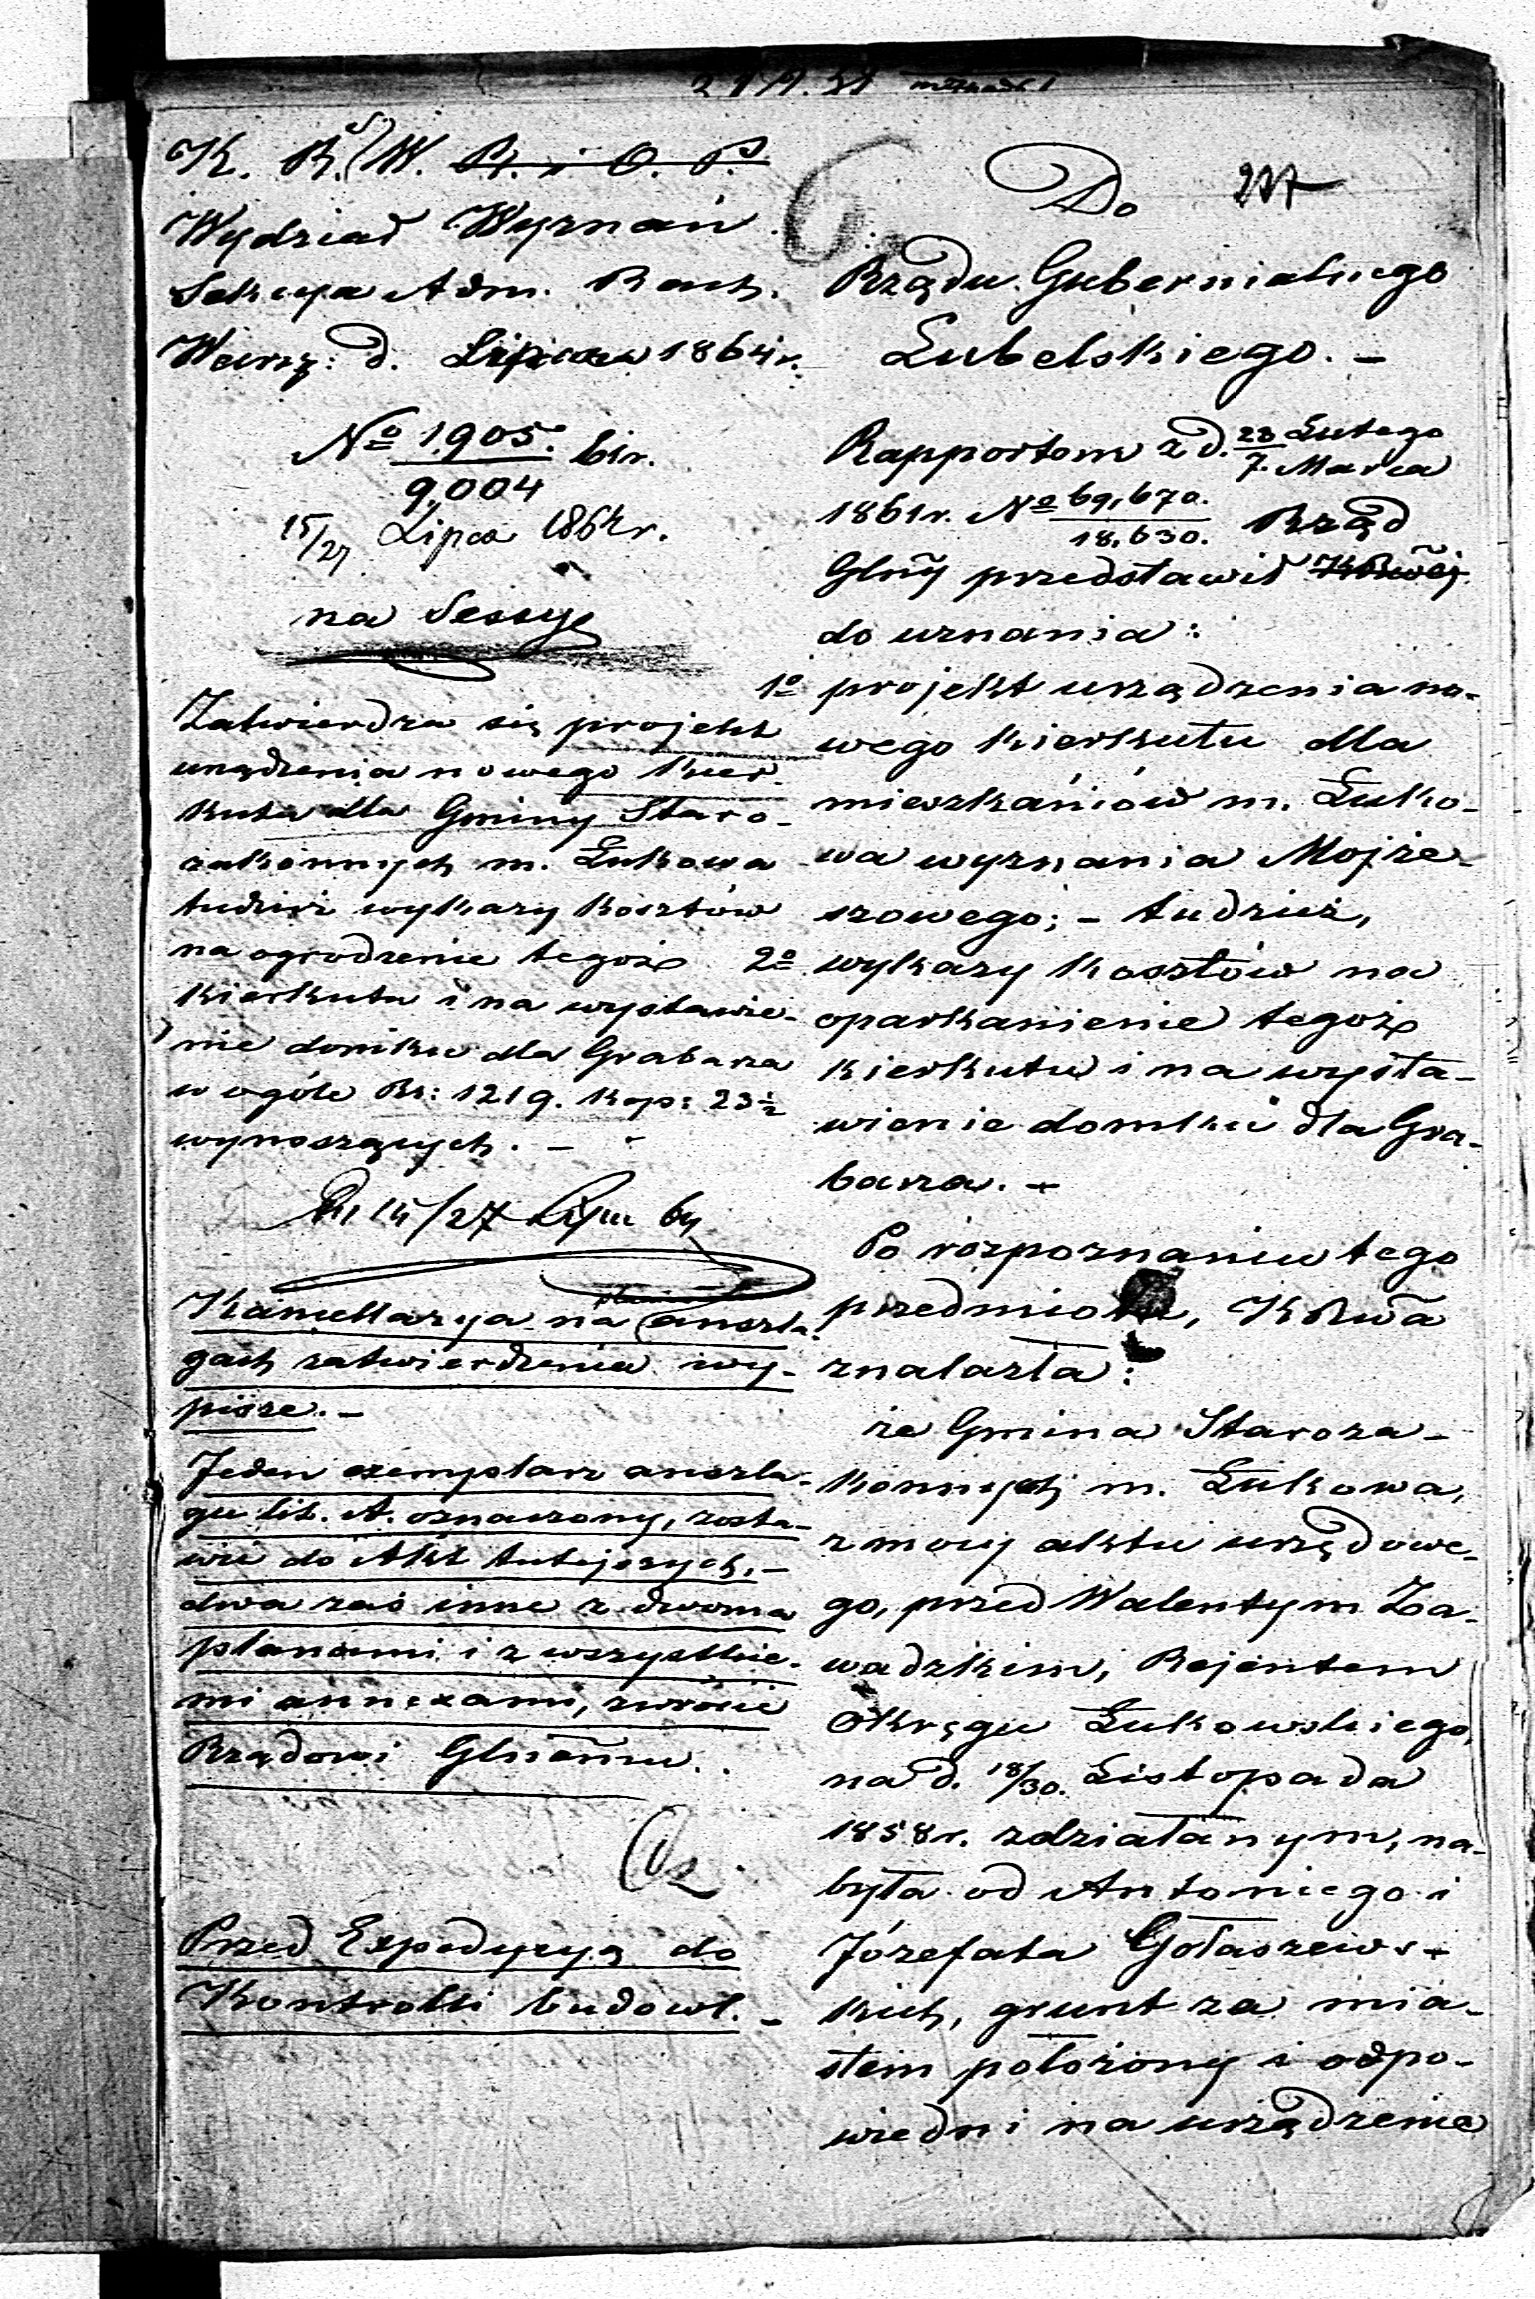 K. R. S. W. R. i O. P.
Wydział Wyznań
Sekcya Adm. Rach.
Warsz: d. Lipca 1864 r.
№ 1905./9,004
15/27 Lipca 1864 r.
na Sessyę
Zatwierdza się projekt
urządzenia nowego kier-
kuta dla Gminy Staro-
zakonnych m. Łukowa
tudzież wykazy kosztów
na ogrodzenie tegoż
kierkuta i na wystawie-
nie domku dla Grabarza
w ogóle Rs: 1219. kop: 23½
wynoszących. —
15/27 Lipca 64
Kancellarya na anszla-
gach zatwierdzenia wy-
pisze. —
Jeden exemplarz anszla-
gu lit. A. oznaczony, zosta-
wić do Akt tutejszych, —
dwa zaś inne z dwoma
planami i z wszystkie-
mi annexami, zwrócić
Rządowi Glnemu.
Przed Expedycyą do
Kontrolli budowl. —
237
Do
Rządu Gubernialnego
Lubelskiego. —
Rapportem z d. 23 Lutego/7. Marca
1861 r. № 69,670./18,630. Rząd
Glny przedstawił
do uznania:
1º projekt urządzenia no-
wego kierkutu dla
mieszkańców m. Łuko-
wa wyznania Mojże-
szowego; — tudzież,
2º wykazy kosztów na
oparkanienie tegoż
kierkutu i na wysta-
wienie domku dla Gra-
barza. —
Po rozpoznaniu tego
przedmiotu, K R wa
znalazła:
że Gmina Staroza-
konnych m. Łukowa,
z mocy aktu urzędowe-
go, przed Walentym Za-
wadzkim, Rejentem
Okręgu Łukowskiego,
na d. 18/30. Listopada
1858 r. zdziałanym, na-
była od Antoniego i
Józefata Gołaszews-
kich, grunt za mia-
stem położony i odpo-
wiedni na urządzenie